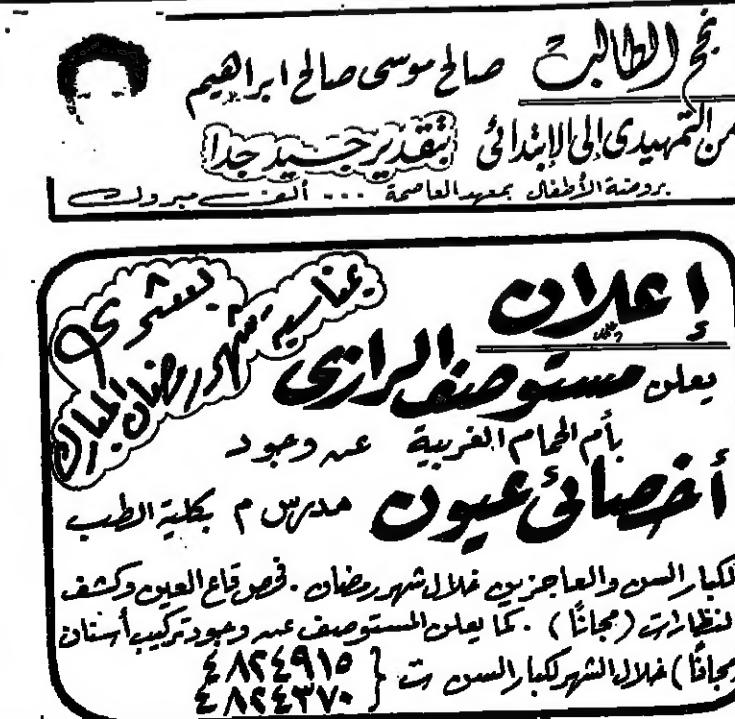 نجح الطالب صالح موسى صالح ابراهيم
من التمهيدى إلى الإبتدائى بتقدير جسيد جدا
بروضة الأطفال بمعهد العاصمة ... ألف مبروك
إعلان
بشرى
بمناسبة شهر رمضان المبارك
يعلن مستوصف الرازى
بأم الحمام الغربية عن وجود
أخصائى عيون مدرس م بكلية الطب
لكبار السن والعاجزين خلال شهر رمضان . فحص قاع العين وكشف
لنظارات (مجانًا) . كما يعلن المستوصف عن وجود تركيب أسنان
مجانًا) خلال الشهر لكبار السن ت { ٤٨٢٤٩١٥
٤٨٢٤٣٧٠